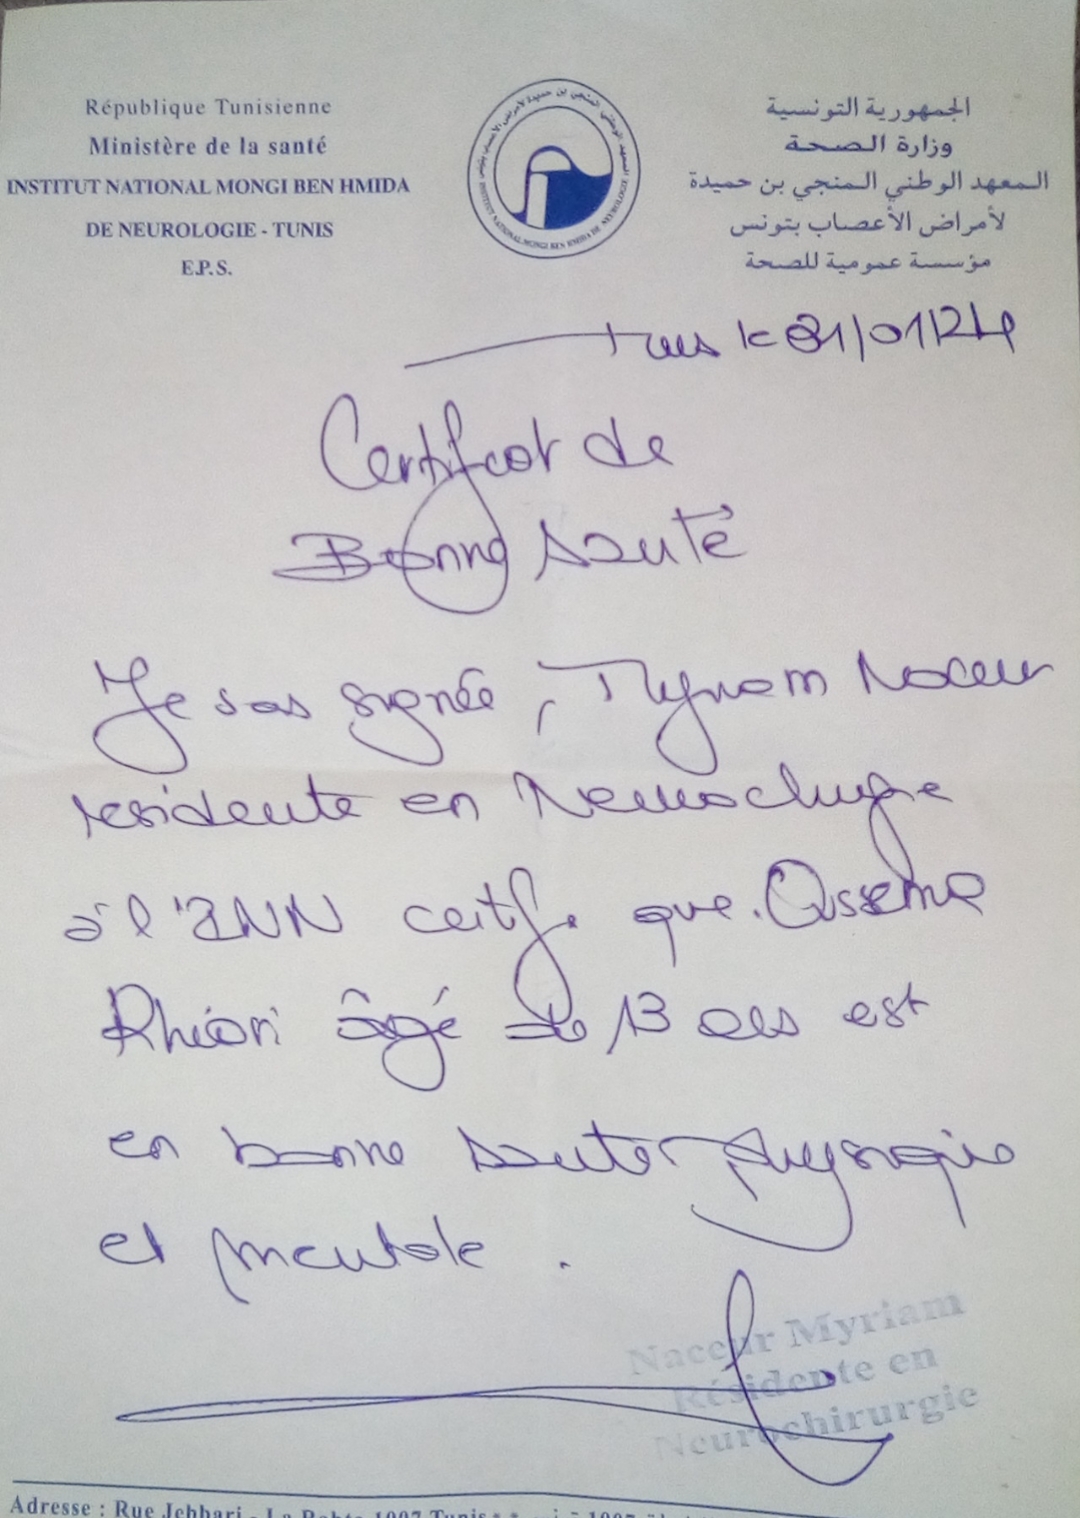 République Tunisienne
Ministère de la santé
INSTITUT NATIONAL MONGI BEN HMIDA
DE NEUROLOGIE - TUNIS
E.P.S.
الجمهورية التونسية
وزارة الصحة
المعهد الوطني المنجي بن حميدة
لأمراض الأعصاب بتونس
مؤسسة عمومية للصحة
Tunis le 31/01/24
Certificat de
Bonne santé
Je sous signée, Myriam Naceur
résidente en Neurochirurgie
à l'INN certifie que Oussema
âgé de 13 ans est
en bonne santé physique
et mentale.
Naceur Myriam
Résidente en
Neurochirurgie
Adresse : Rue Jebbari - La Rabta 1007 Tunis